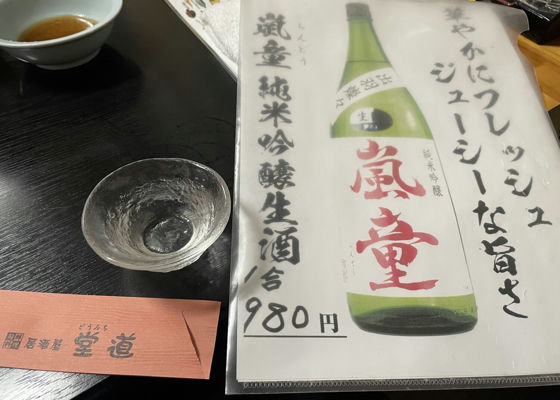 華やかにフレッシュ
ジューシーな旨さ
出羽燦々
生
純米吟醸
嵐童
らんどう
嵐童 純米吟醸生酒
1合
980円
道堂